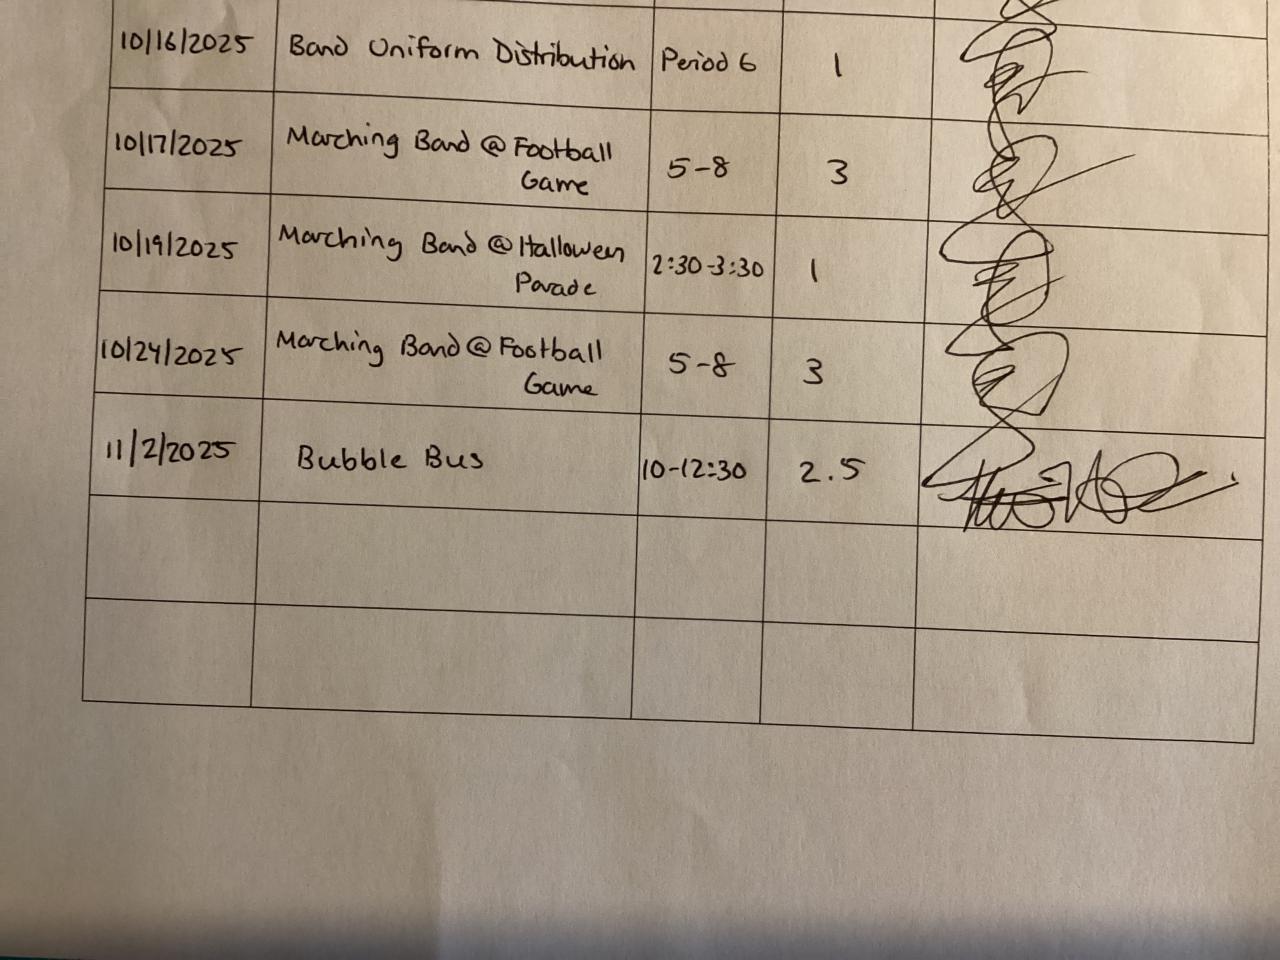 10/16/2025 Band Uniform Distribution Period 6 1
10/17/2025 Marching Band @ Football
Game 5-8 3
10/19/2025 Marching Band @ Hallowen
Parade 2:30-3:30 1
10/24/2025 Marching Band @ Football
Game 5-8 3
11/2/2025 Bubble Bus 10-12:30 2.5